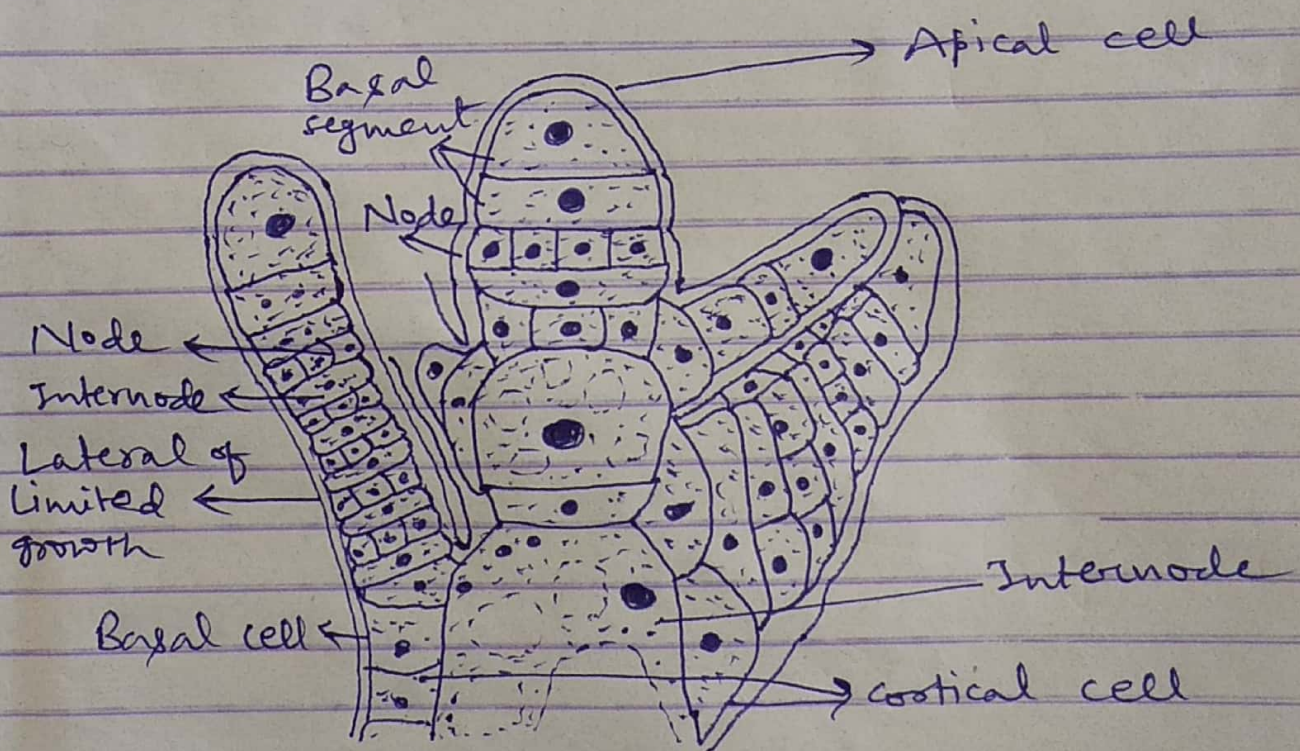 Apical cell
Basal
segment
Node
Node
Internode
Lateral of
Limited
growth
Internode
Basal cell
cortical cell